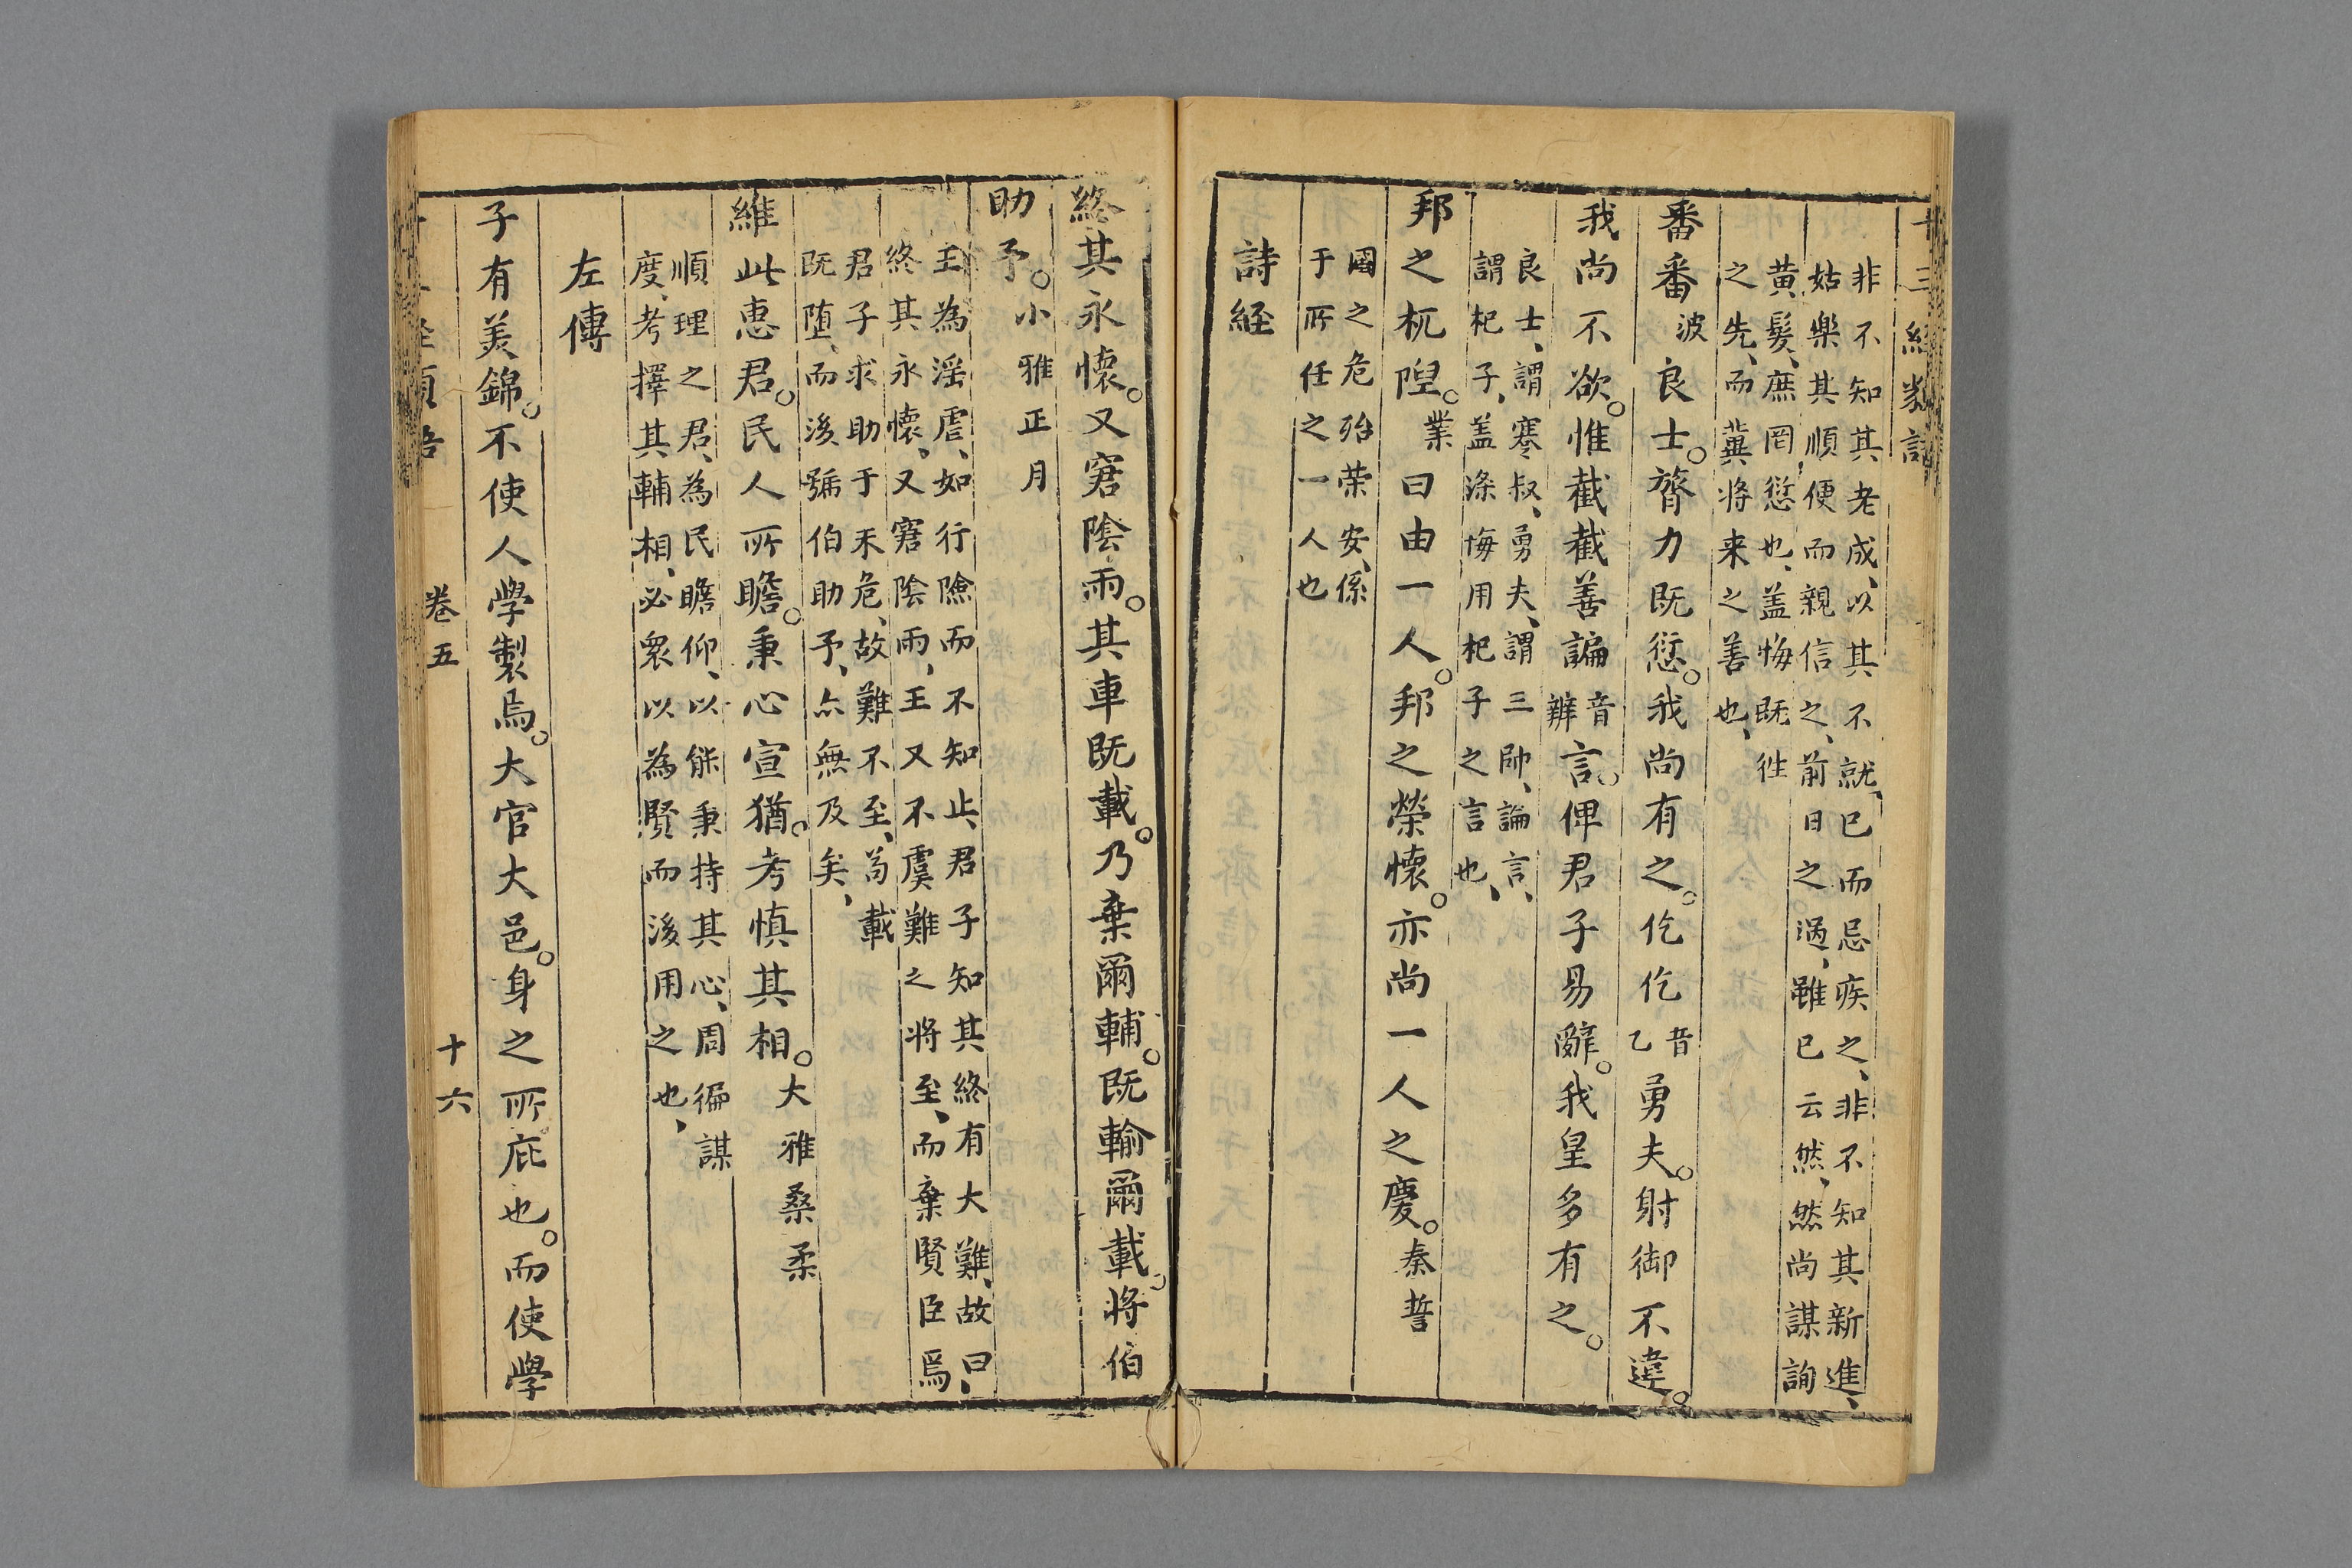 十三經類語
非不知其老成、以其不就、已而忌疾之、非不知其新進、
姑樂其順便而親信之、前日之過、雖已云然、然尚謀詢
黄髮、庶罔愆也、盖悔既徃
之先、而冀将来之善也、
番番波良士。膂力既愆。我尚有之。仡仡音乙勇夫。射御不違。
我尚不欲。惟截截善諞音辨言。俾君子易辭。我皇多有之。
良士、謂蹇叔、勇夫、謂三帥、論言、
謂杞子、盖深悔用杞子之言也、
邦之杌隉。業曰由一人。邦之榮懷。亦尚一人之慶。秦誓
國之危殆荣安、係
于所任之一人也
詩経
終其永懷。又窘陰雨。其車既載。乃棄爾輔。既輸爾載。将伯
助予。小雅正月
王為淫虐、如行險而不知止、君子知其終有大難、故曰、
終其永懷、又窘陰雨、王又不虞難之将至、而棄賢臣焉
君子求助于未危、故難不至、苟載
既堕、而後號伯助予、亦無及矣、
維此惠君。民人所瞻。秉心宣猶。考慎其相。大雅桑柔
順理之君、為民瞻仰、以能秉持其心、周徧謀
度、考擇其輔相、必衆以為賢而後用之也、
左傳
子有美錦。不使人學製焉。大官大邑。身之所庇也。而使學
卷五 十六